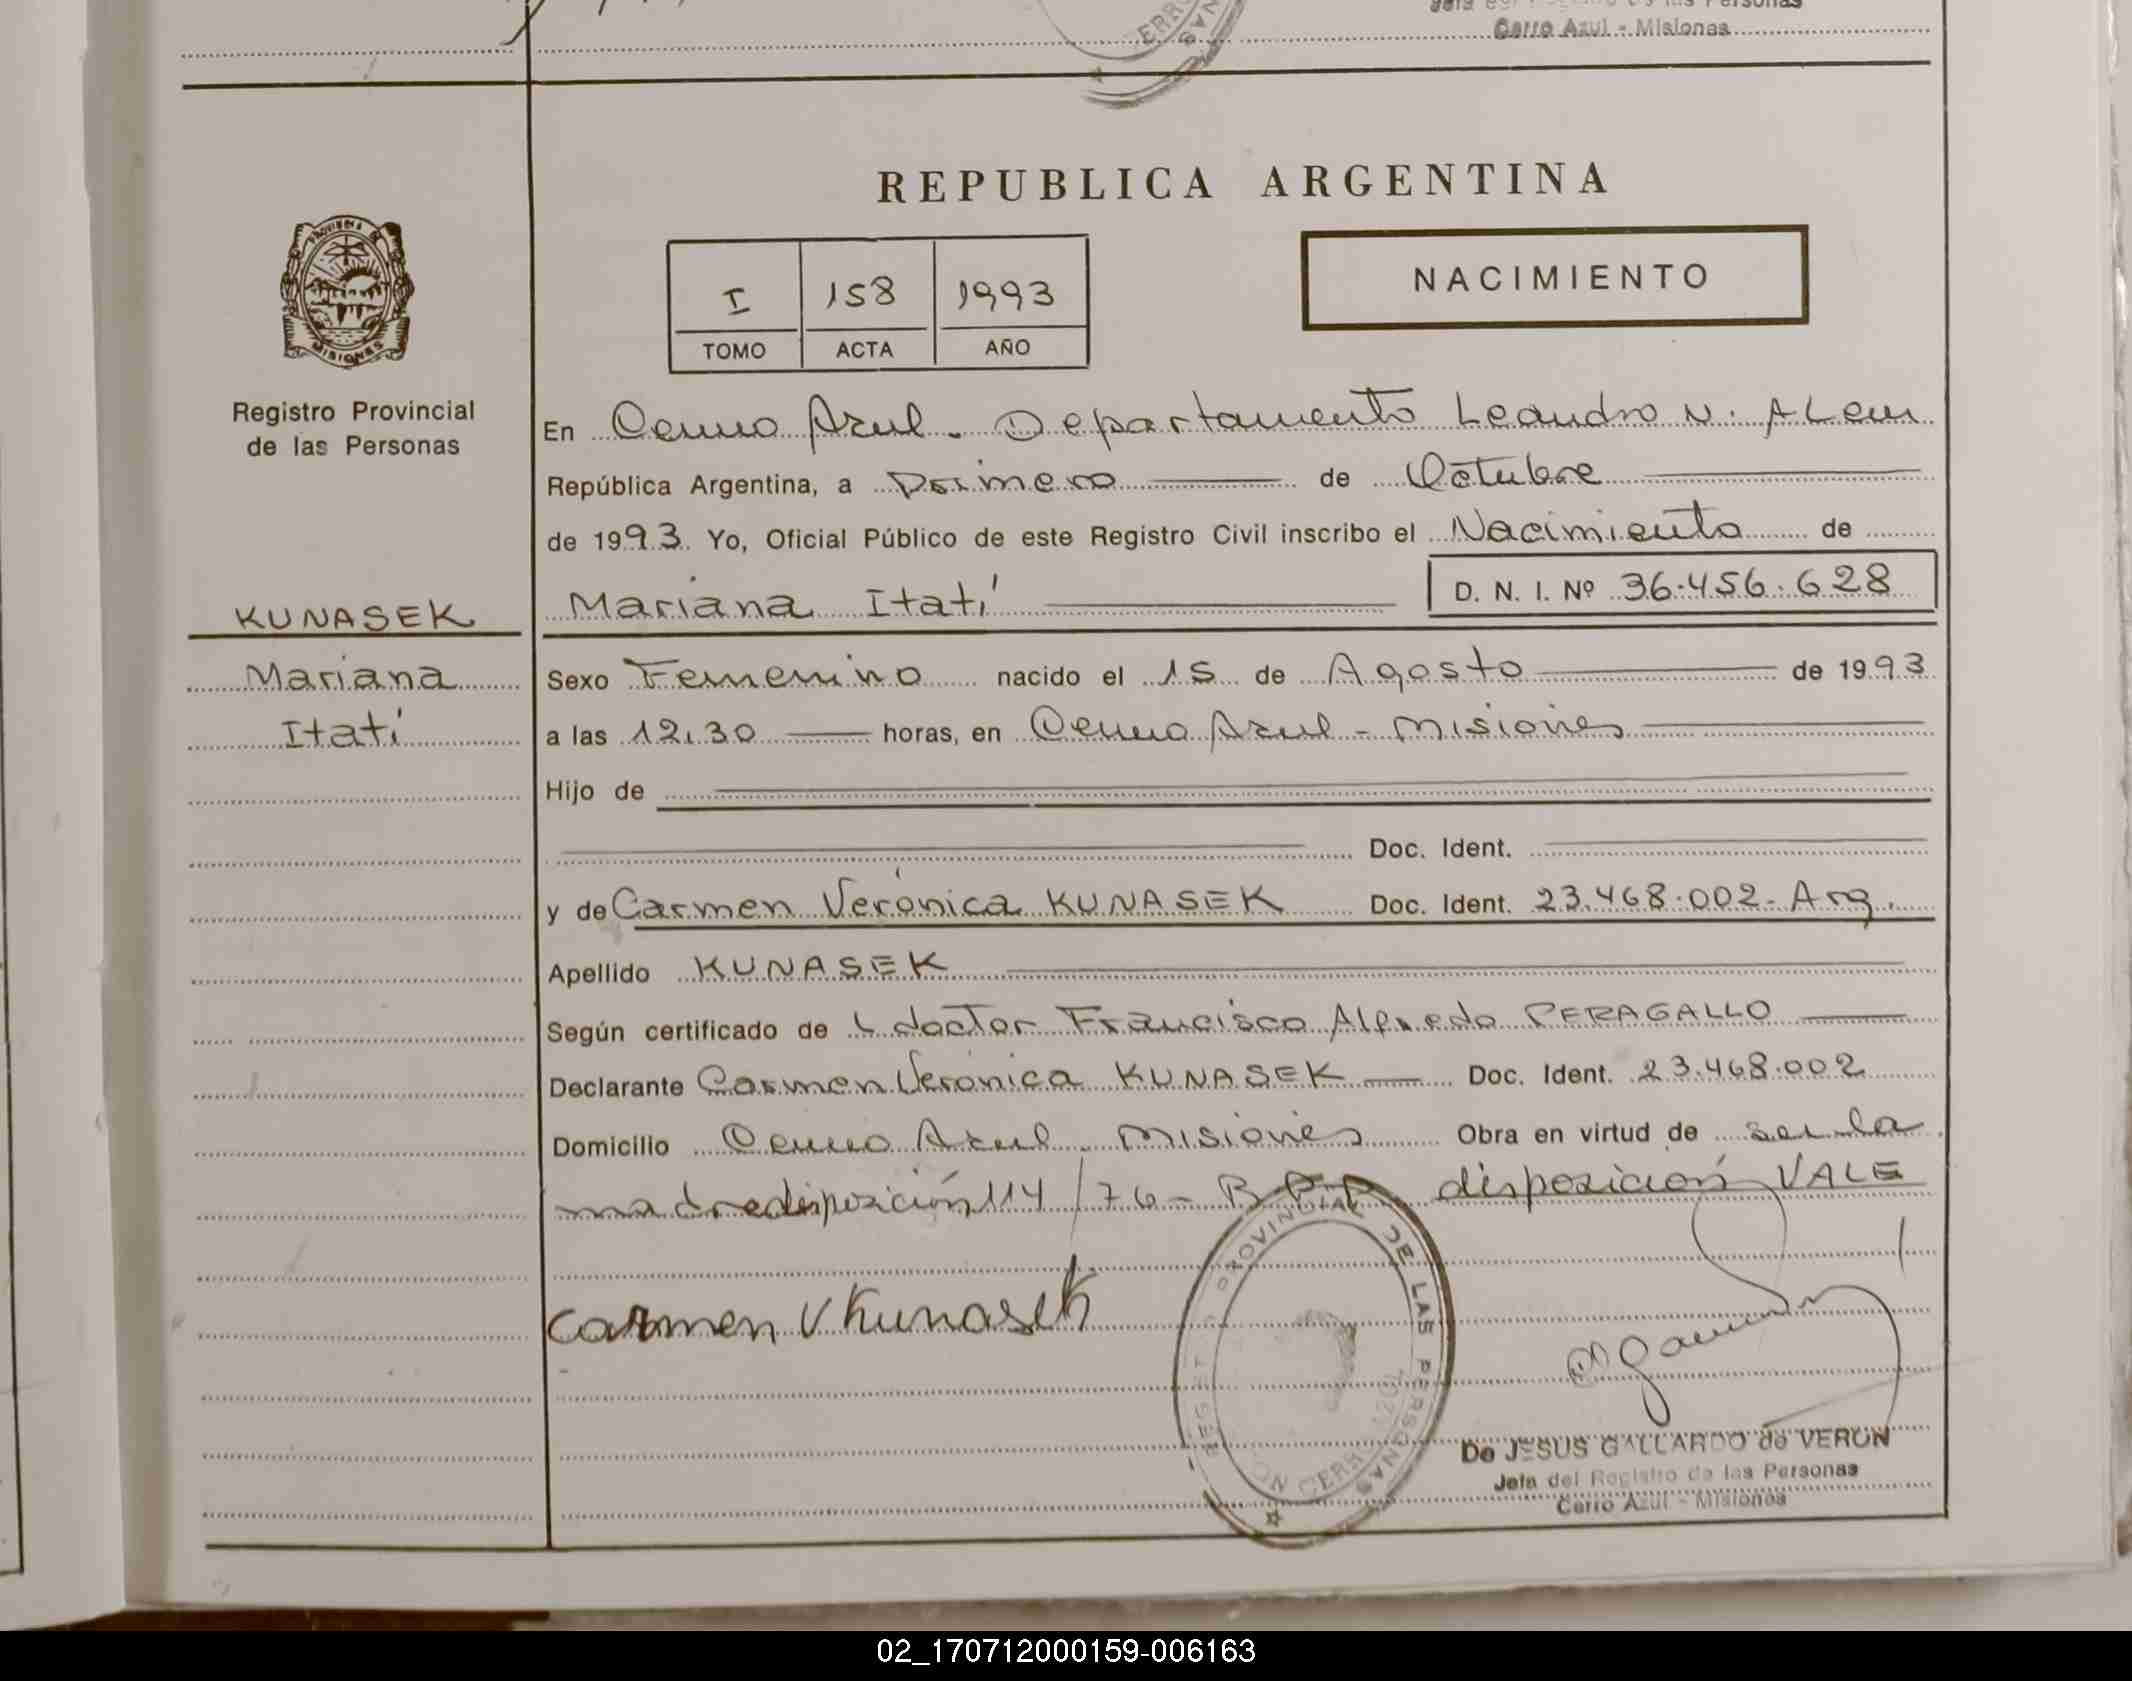 Jefa del Registro de las Personas
Cerro Azul - Misiones
REPUBLICA ARGENTINA
PROVINCIA DE
MISIONES
Registro Provincial
de las Personas
I 158 1993
TOMO ACTA AÑO
NACIMIENTO
En Cerro Azul. Departamento Leandro N. ALem
República Argentina, a Primero de Octubre
de 1993. Yo, Oficial Público de este Registro Civil inscribo el Nacimiento de
Mariana Itatí D. N. I. Nº 36.456.628
KUNASEK
Mariana
Itatí
Sexo Femenino nacido el 15 de Agosto de 1993
a las 12.30 horas, en Cerro Azul - Misiones
Hijo de
Doc. Ident.
y de Carmen Verónica KUNASEK Doc. Ident. 23.468.002- Arg.
Apellido KUNASEK
Según certificado de L doctor Francisco Alfredo PERAGALLO
Declarante Carmen Verónica KUNASEK Doc. Ident. 23.468.002
Domicilio Cerro Azul. Misiones Obra en virtud de ser la
madre disposición 114/76- disposición VALE
Carmen V Kunasek
REGISTRO PROVINCIAL DE LAS PERSONAS
CERRO AZUL
De JESUS GALLARDO de VERON
Jefa del Registro de las Personas
Cerro Azul - Misiones
02_170712000159-006163